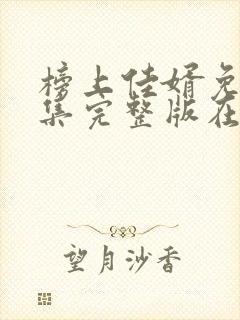 榜上佳婿免
集完整版在
望月沙香